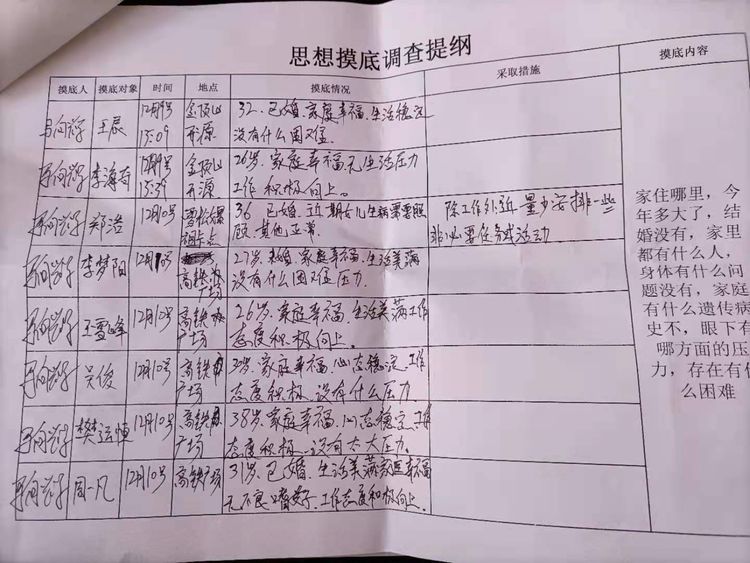 思想摸底调查提纲
摸底人 摸底对象 时间 地点 摸底情况 采取措施 摸底内容
王辰 12月9号 金顶山 32.已婚.家庭幸福.生活稳定
15:09 开源 没有什么困难
李海奇 12月9号 金顶山 26岁.家庭幸福.无生活压力
15:29 开源 工作积极向上。
郑浩 12月10号 36 已婚.近期女儿生病需要照 除工作外近量少安排一些
顾.其他正常 非必要任务或活动
李梦阳 高铁 27岁.未婚.家庭幸福.生活美满
广场 没有什么困难压力
王雪峰 12月10号 高铁 26岁.家庭幸福.生活美满工作
广场 态度积极向上.
吴俊 12月10号 高铁 家庭幸福.心态稳定.工作
广场 态度积极.没有什么压力.
樊运恒 12月10号 高铁 38岁.家庭幸福.心态稳定.工作
广场 态度积极.没有太大压力.
周一凡 12月10号 高铁广场 31岁.已婚.生活美满家庭幸福
无不良嗜好.工作态度积极向上.
家住哪里，今
年多大了，结
婚没有，家里
都有什么人，
身体有什么问
题没有，家庭
有什么遗传病
史不，眼下有
哪方面的压
力，存在有什
么困难